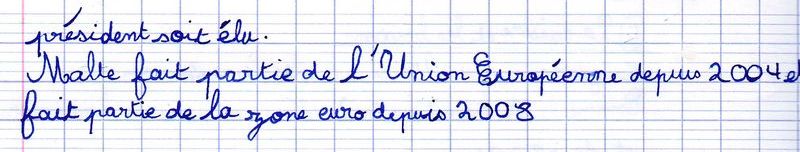 président soit élu.
Malte fait partie de l'Union Européenne depuis 2004 et
fait partie de la zone euro depuis 2008